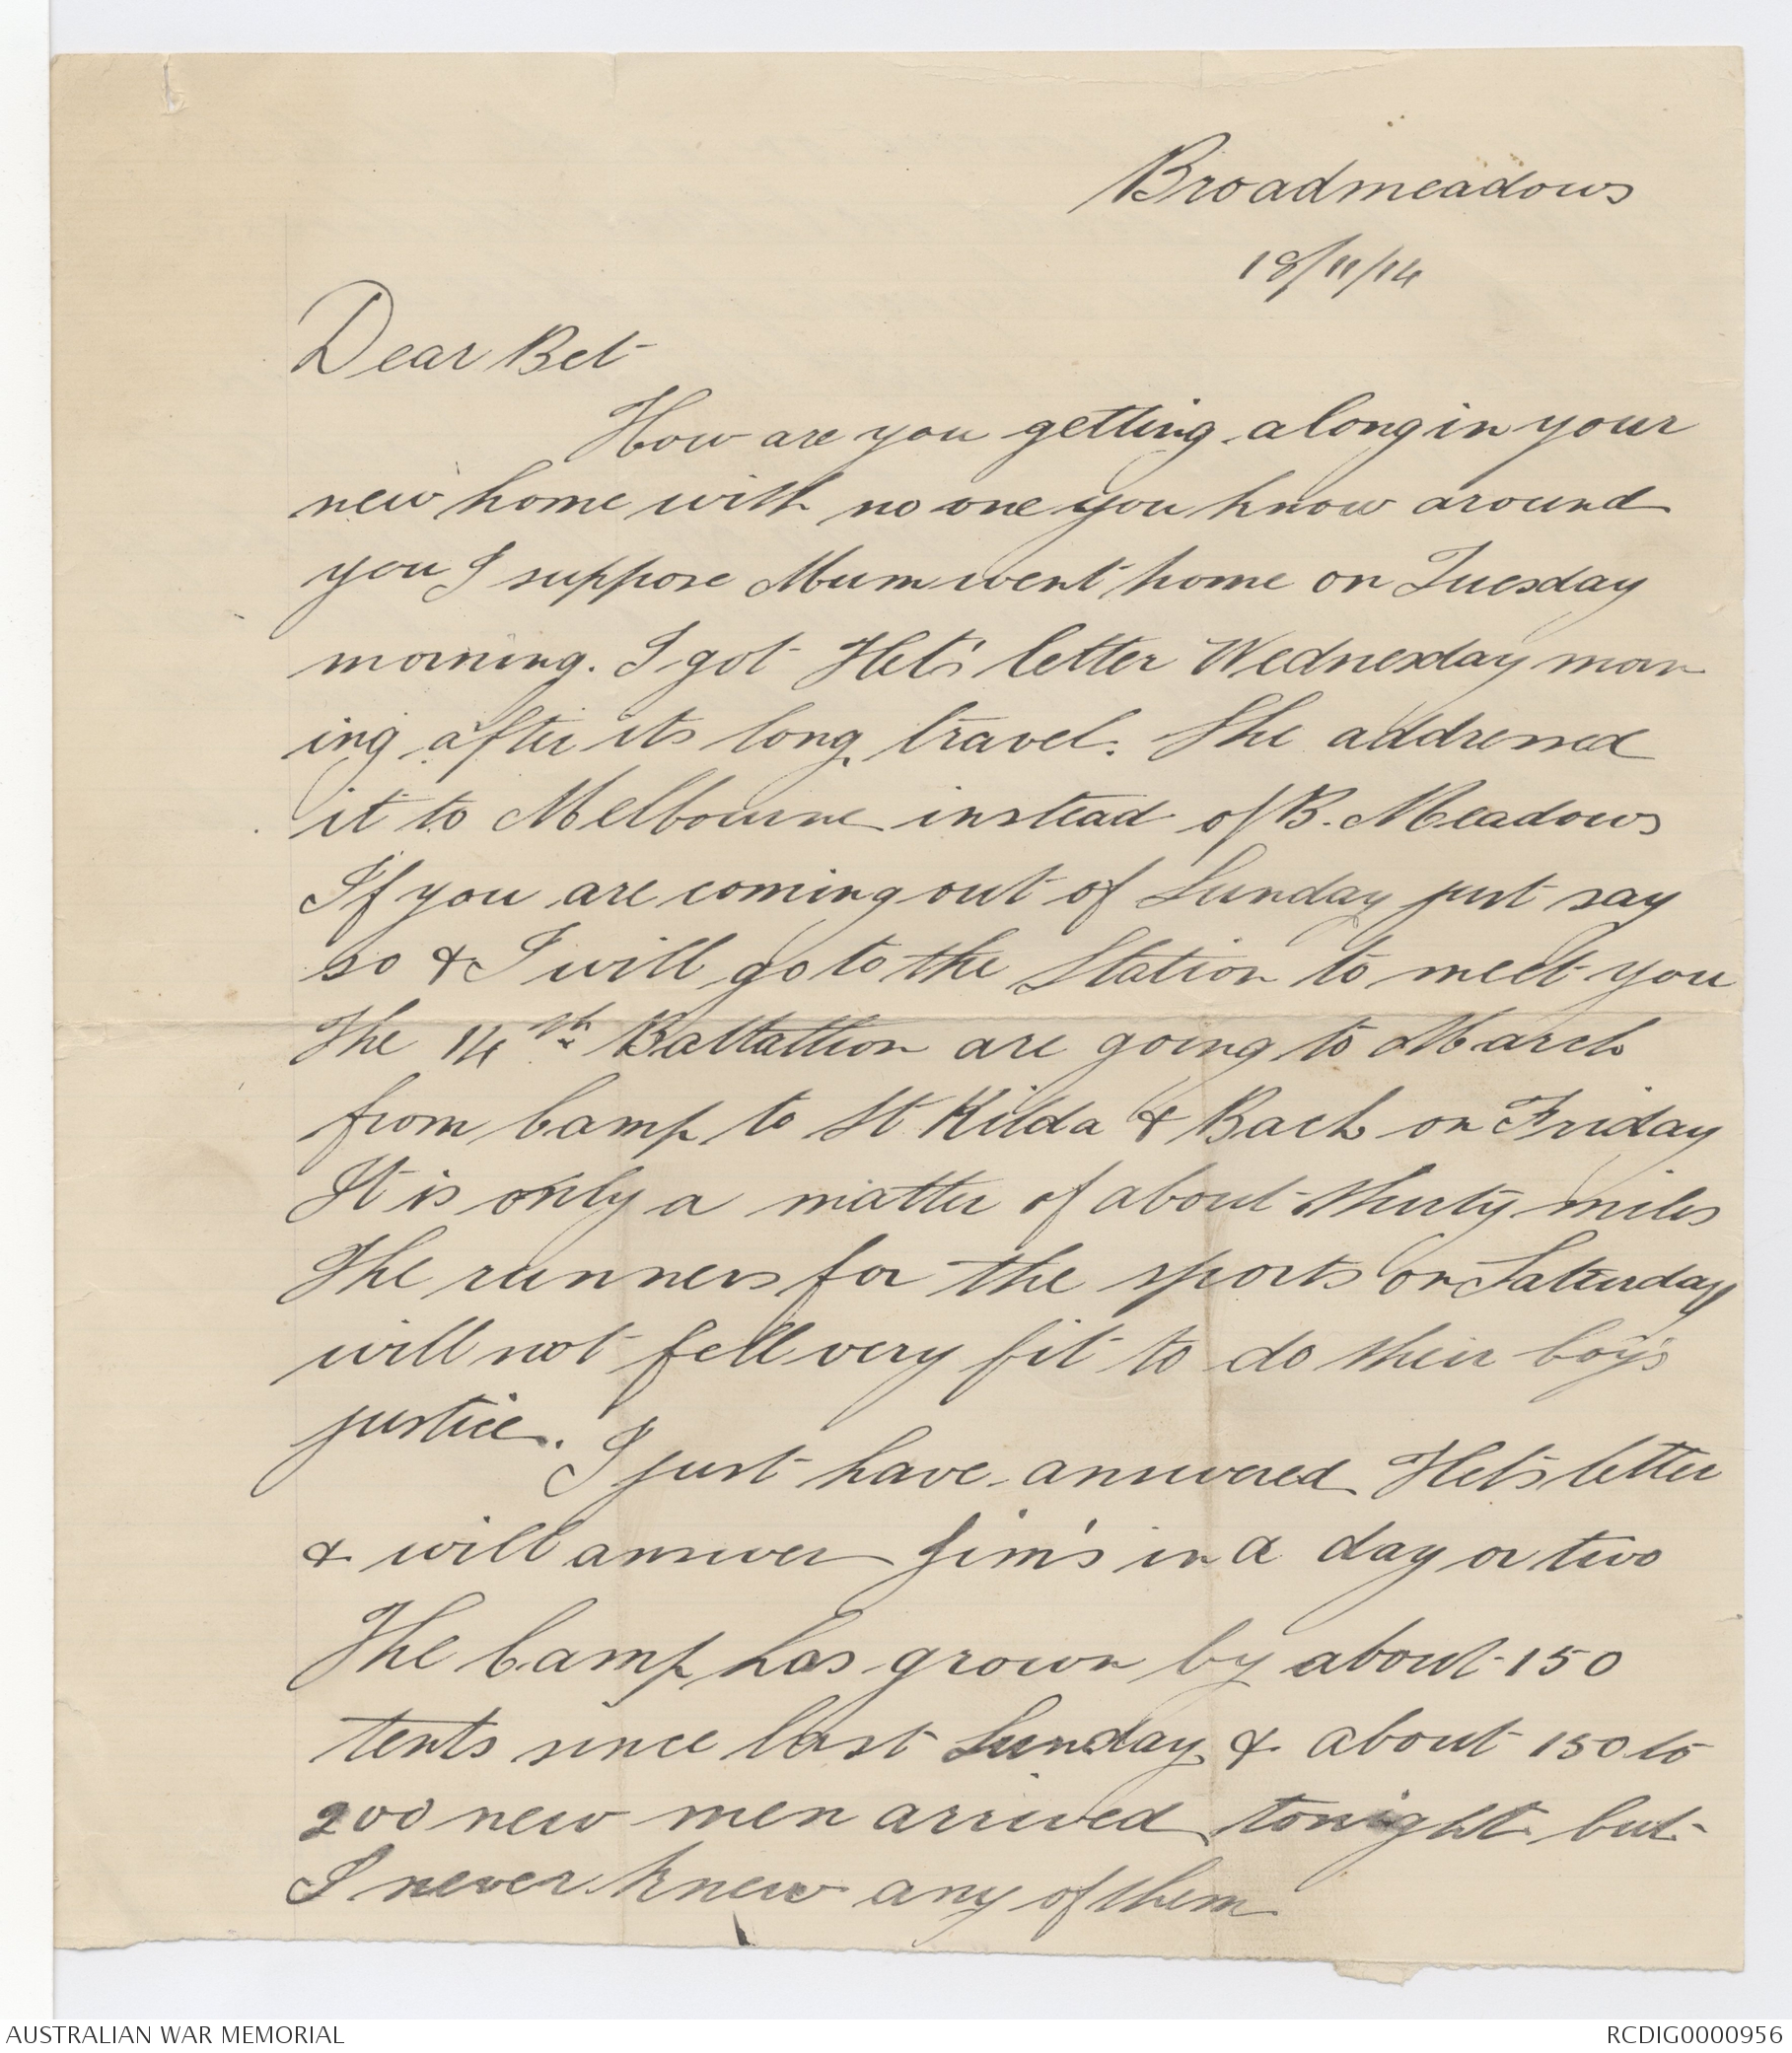 Broadmeadows
18/11/14
Dear Bet
How are you getting along in your
new home with no one you know around
you I suppose Mum went home on Tuesday
morning. I got Het's letter Wednesday morn
ing after its long travel. She addressed
it to Melbourne instead of B. Meadows
If you are coming out of Sunday just say
so & I will go to the Station to meet you
The 14th Battattion are going to March
from Camp to St Kilda & Back on Friday
It is only a matter of about thirty miles
The runners for the sports on Saturday
will not fell very fit to do their boy's
justice.
I just have answered Het's letter
& will answer Jim's in a day or two
The Camp has grown by about 150
tents since last Sunday & about 150 to
200 new men arrived tonight but
I never knew any of them
AUSTRALIAN WAR MEMORIAL
RCDIG0000956